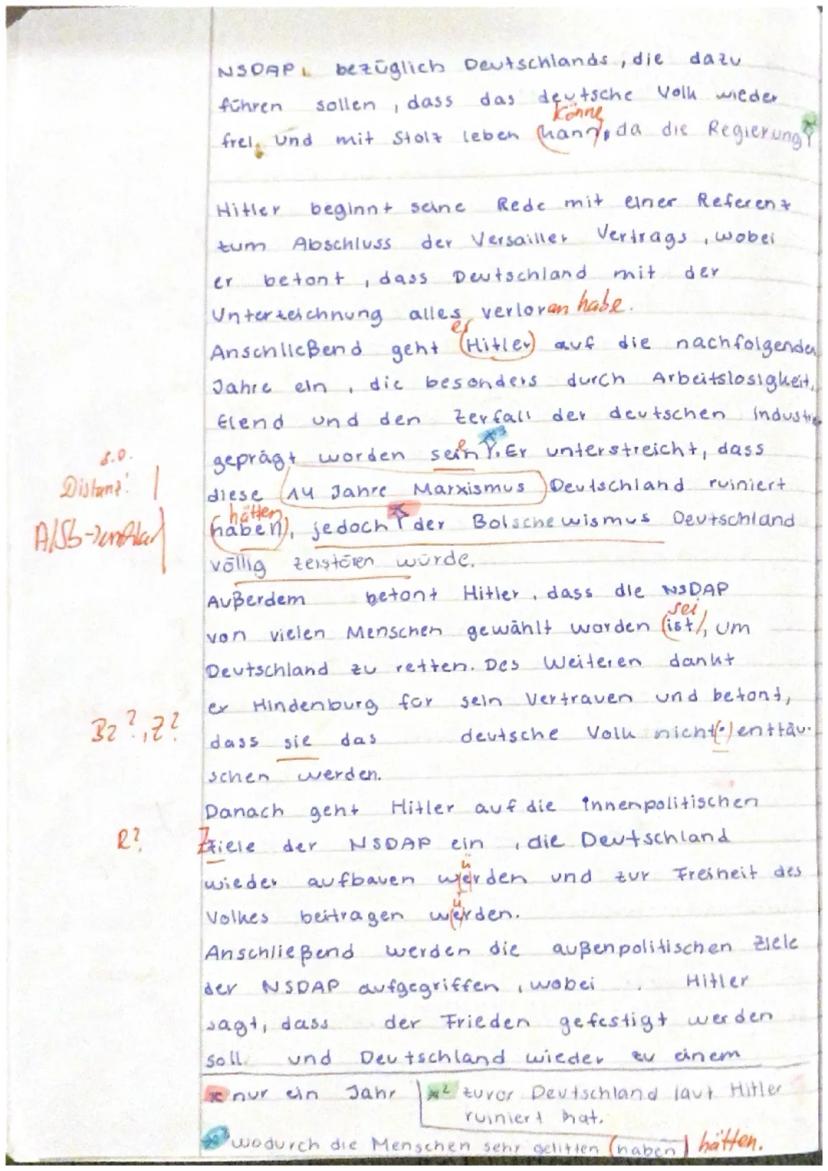 NSDAP, bezüglich Deutschlands, die dazu
führen sollen, dass das deutsche Volk wieder
könne
frei und mit Stolz leben (kann), da die Regierung
Hitler beginnt seine Rede mit einer Referenz
zum Abschluss der Versailler Vertrags, wobei
er betont, dass Deutschland mit der
Unterzeichnung alles verloren habe.
er
Anschließend geht (Hitler) auf die nachfolgenden
Jahre ein, die besonders durch Arbeitslosigkeit,
Elend und den Zerfall der deutschen Industrie
s.o.
geprägt worden sein. Er unterstreicht, dass
Distanz!
diese (14 Jahre Marxismus) Deutschland ruiniert
hätten
A/Sb->unklar
(haben), jedoch der Bolschewismus Deutschland
völlig zerstören würde.
Außerdem betont Hitler, dass die NSDAP
sei
von vielen Menschen gewählt worden (ist), um
Deutschland zu retten. Des Weiteren dankt
er Hindenburg für sein Vertrauen und betont,
Bz?, Z?
dass sie das deutsche Volk nicht(.) enttäu-
schen werden.
Danach geht Hitler auf die innenpolitischen
R?
Ziele der NSDAP ein, die Deutschland
ü
wieder aufbauen werden und zur Freiheit des
ü
Volkes beitragen werden.
Anschließend werden die außenpolitischen Ziele
der NSDAP aufgegriffen, wobei Hitler
sagt, dass der Frieden gefestigt werden
soll und Deutschland wieder zu einem
* nur ein Jahr
*2 zuvor Deutschland laut Hitler
ruiniert hat.
wodurch die Menschen sehr gelitten (haben) hätten.